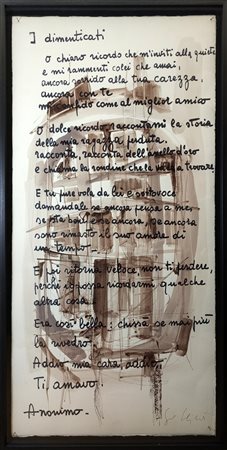 I dimenticati
O chiaro ricordo che m'inviti alla quiete
e mi rammenti colei che amai,
ancora sorrido alla tua carezza,
ancora con te
mi confido come al miglior amico
O dolce ricordo raccontami la storia
della mia ragazza perduta,
racconta, racconta dell'anello d'oro
e chiama la rondine che la vada a trovare
E tu pure vola da lei e sottovoce
domandale se ancora pensa a me,
se sta bene ancora, se ancora
sono rimasto il suo amore di
un tempo.
E poi ritorna veloce, non ti perdere,
perché possa ricordarmi qualche
altra cosa.
Era così bella; chissà se mai più
la rivedrò
Addio, mia cara, addio.
Ti amavo.
Anonimo.